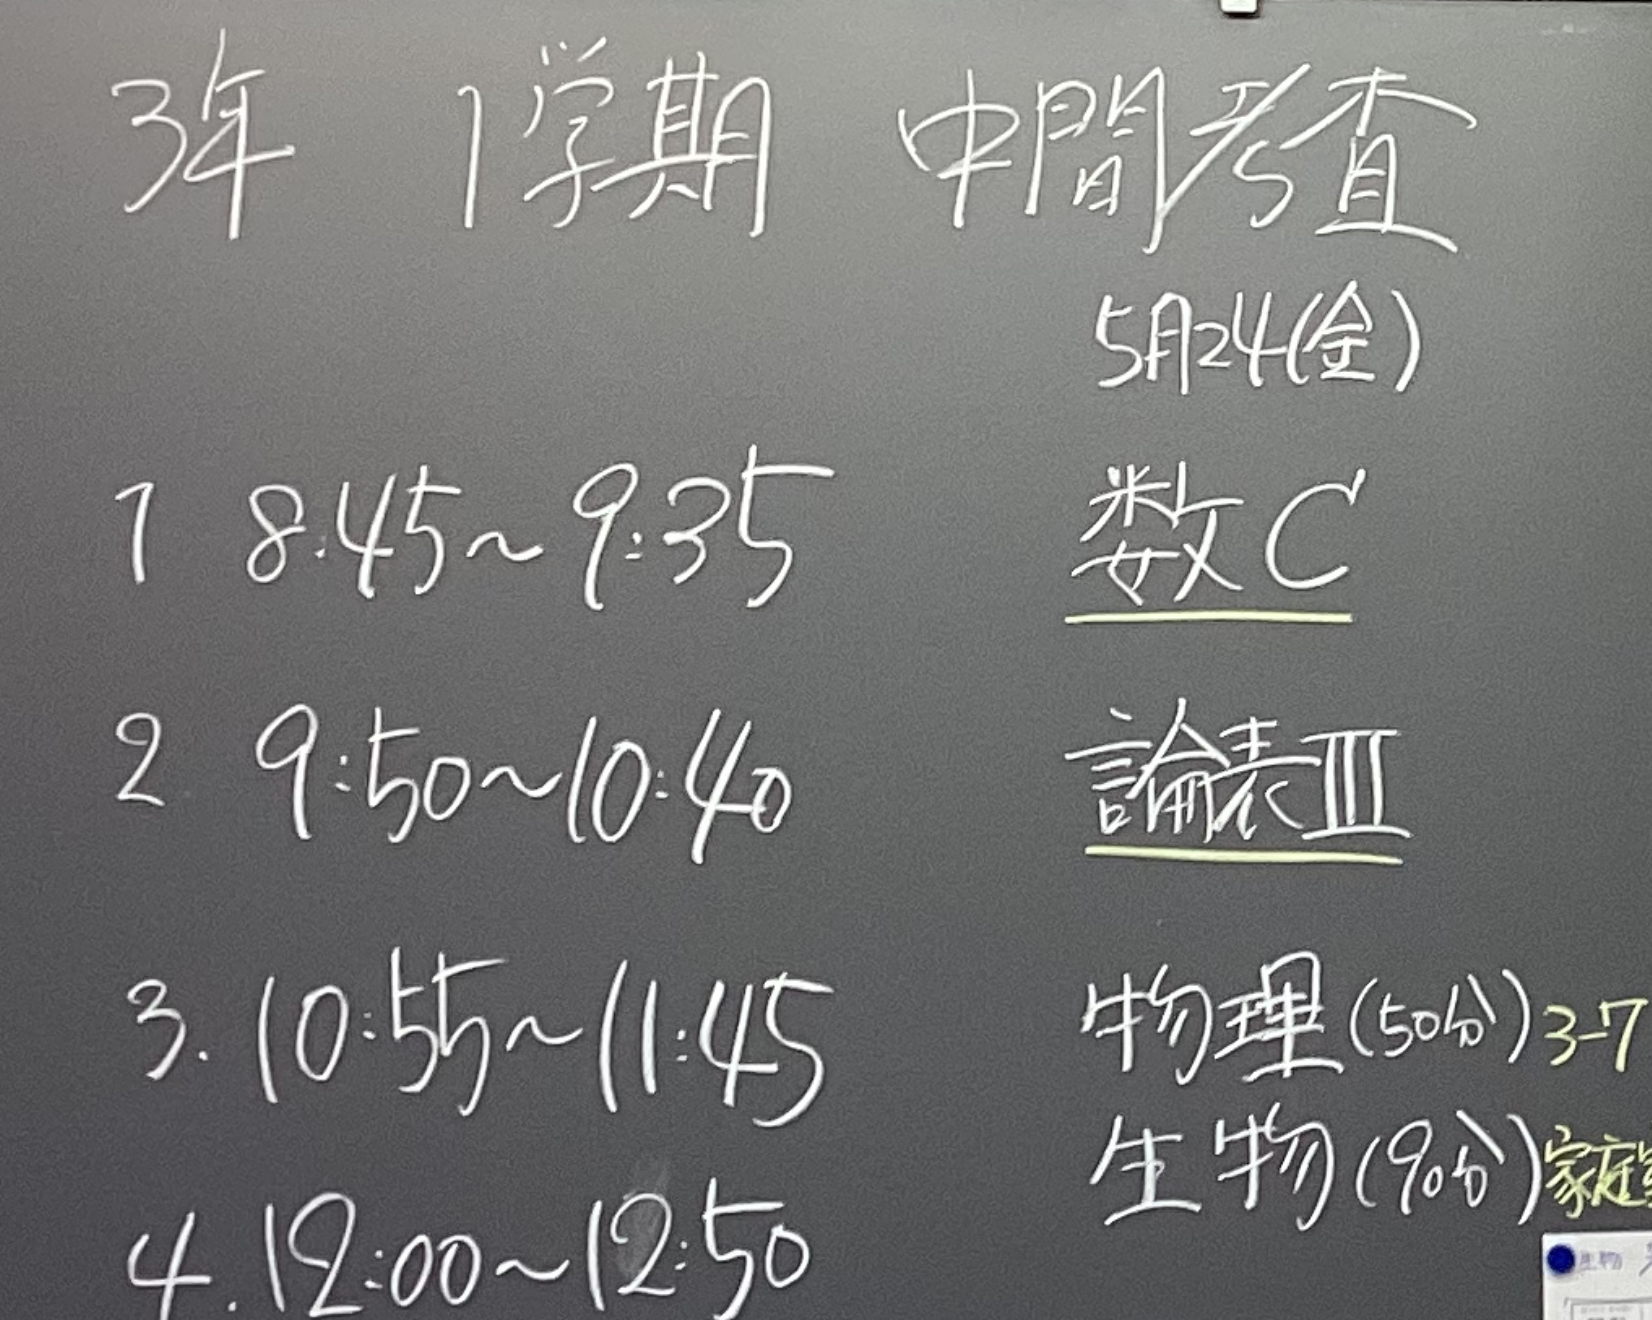 3年 1学期 中間考査
5月24(金)
1 8:45~9:35 数C
2 9:50~10:40 論表III
3. 10:55~11:45 物理(50分) 3-7
生物(90分) 家庭
4. 12:00~12:50
生物